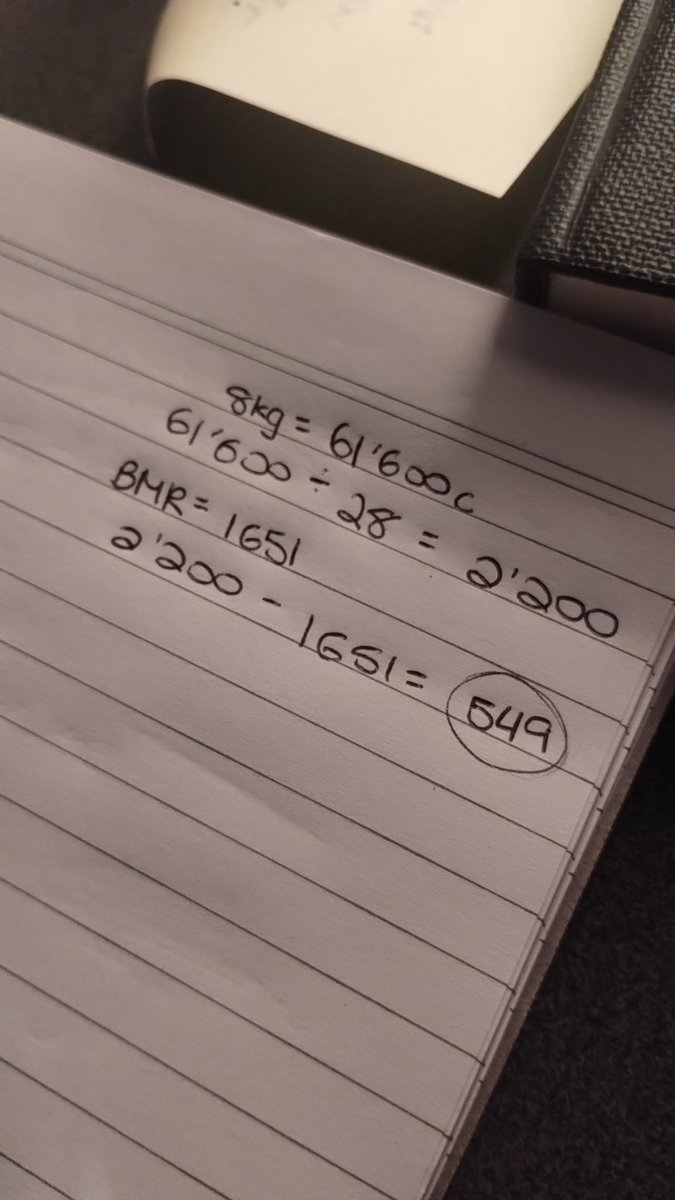 8kg = 61'600c
61'600 ÷ 28 = 2'200
BMR = 1651
2'200 - 1651 = 549